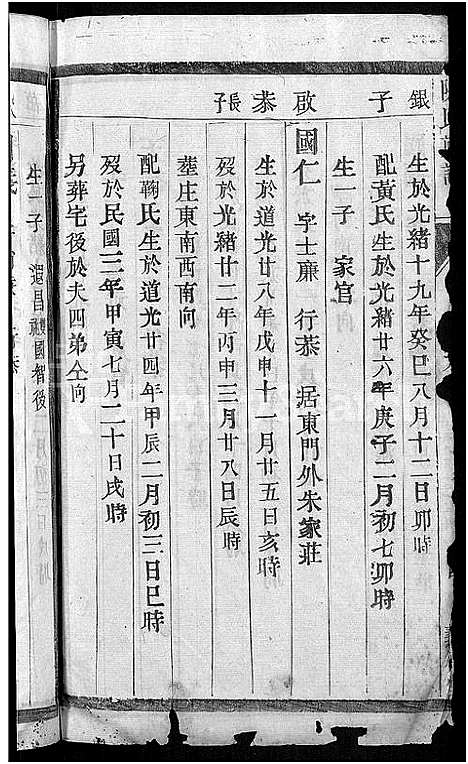 銀子
生於光緒十九年癸巳八月十二日卯時
配黃氏生於光緒廿六年庚子二月初七卯時
生一子 家官
啟恭長子
國仁 字士廉 行恭 居東門外朱家莊
生於道光廿八年戊申十一月廿五日亥時
歿於光緒廿二年丙申三月廿八日辰時
塟庄東南西南向
配鞠氏生於道光廿四年甲辰二月初三日巳時
歿於民國三年甲寅七月二十日戌時
另葬宅後於夫四弟仝向
生一子 還昌 國智後